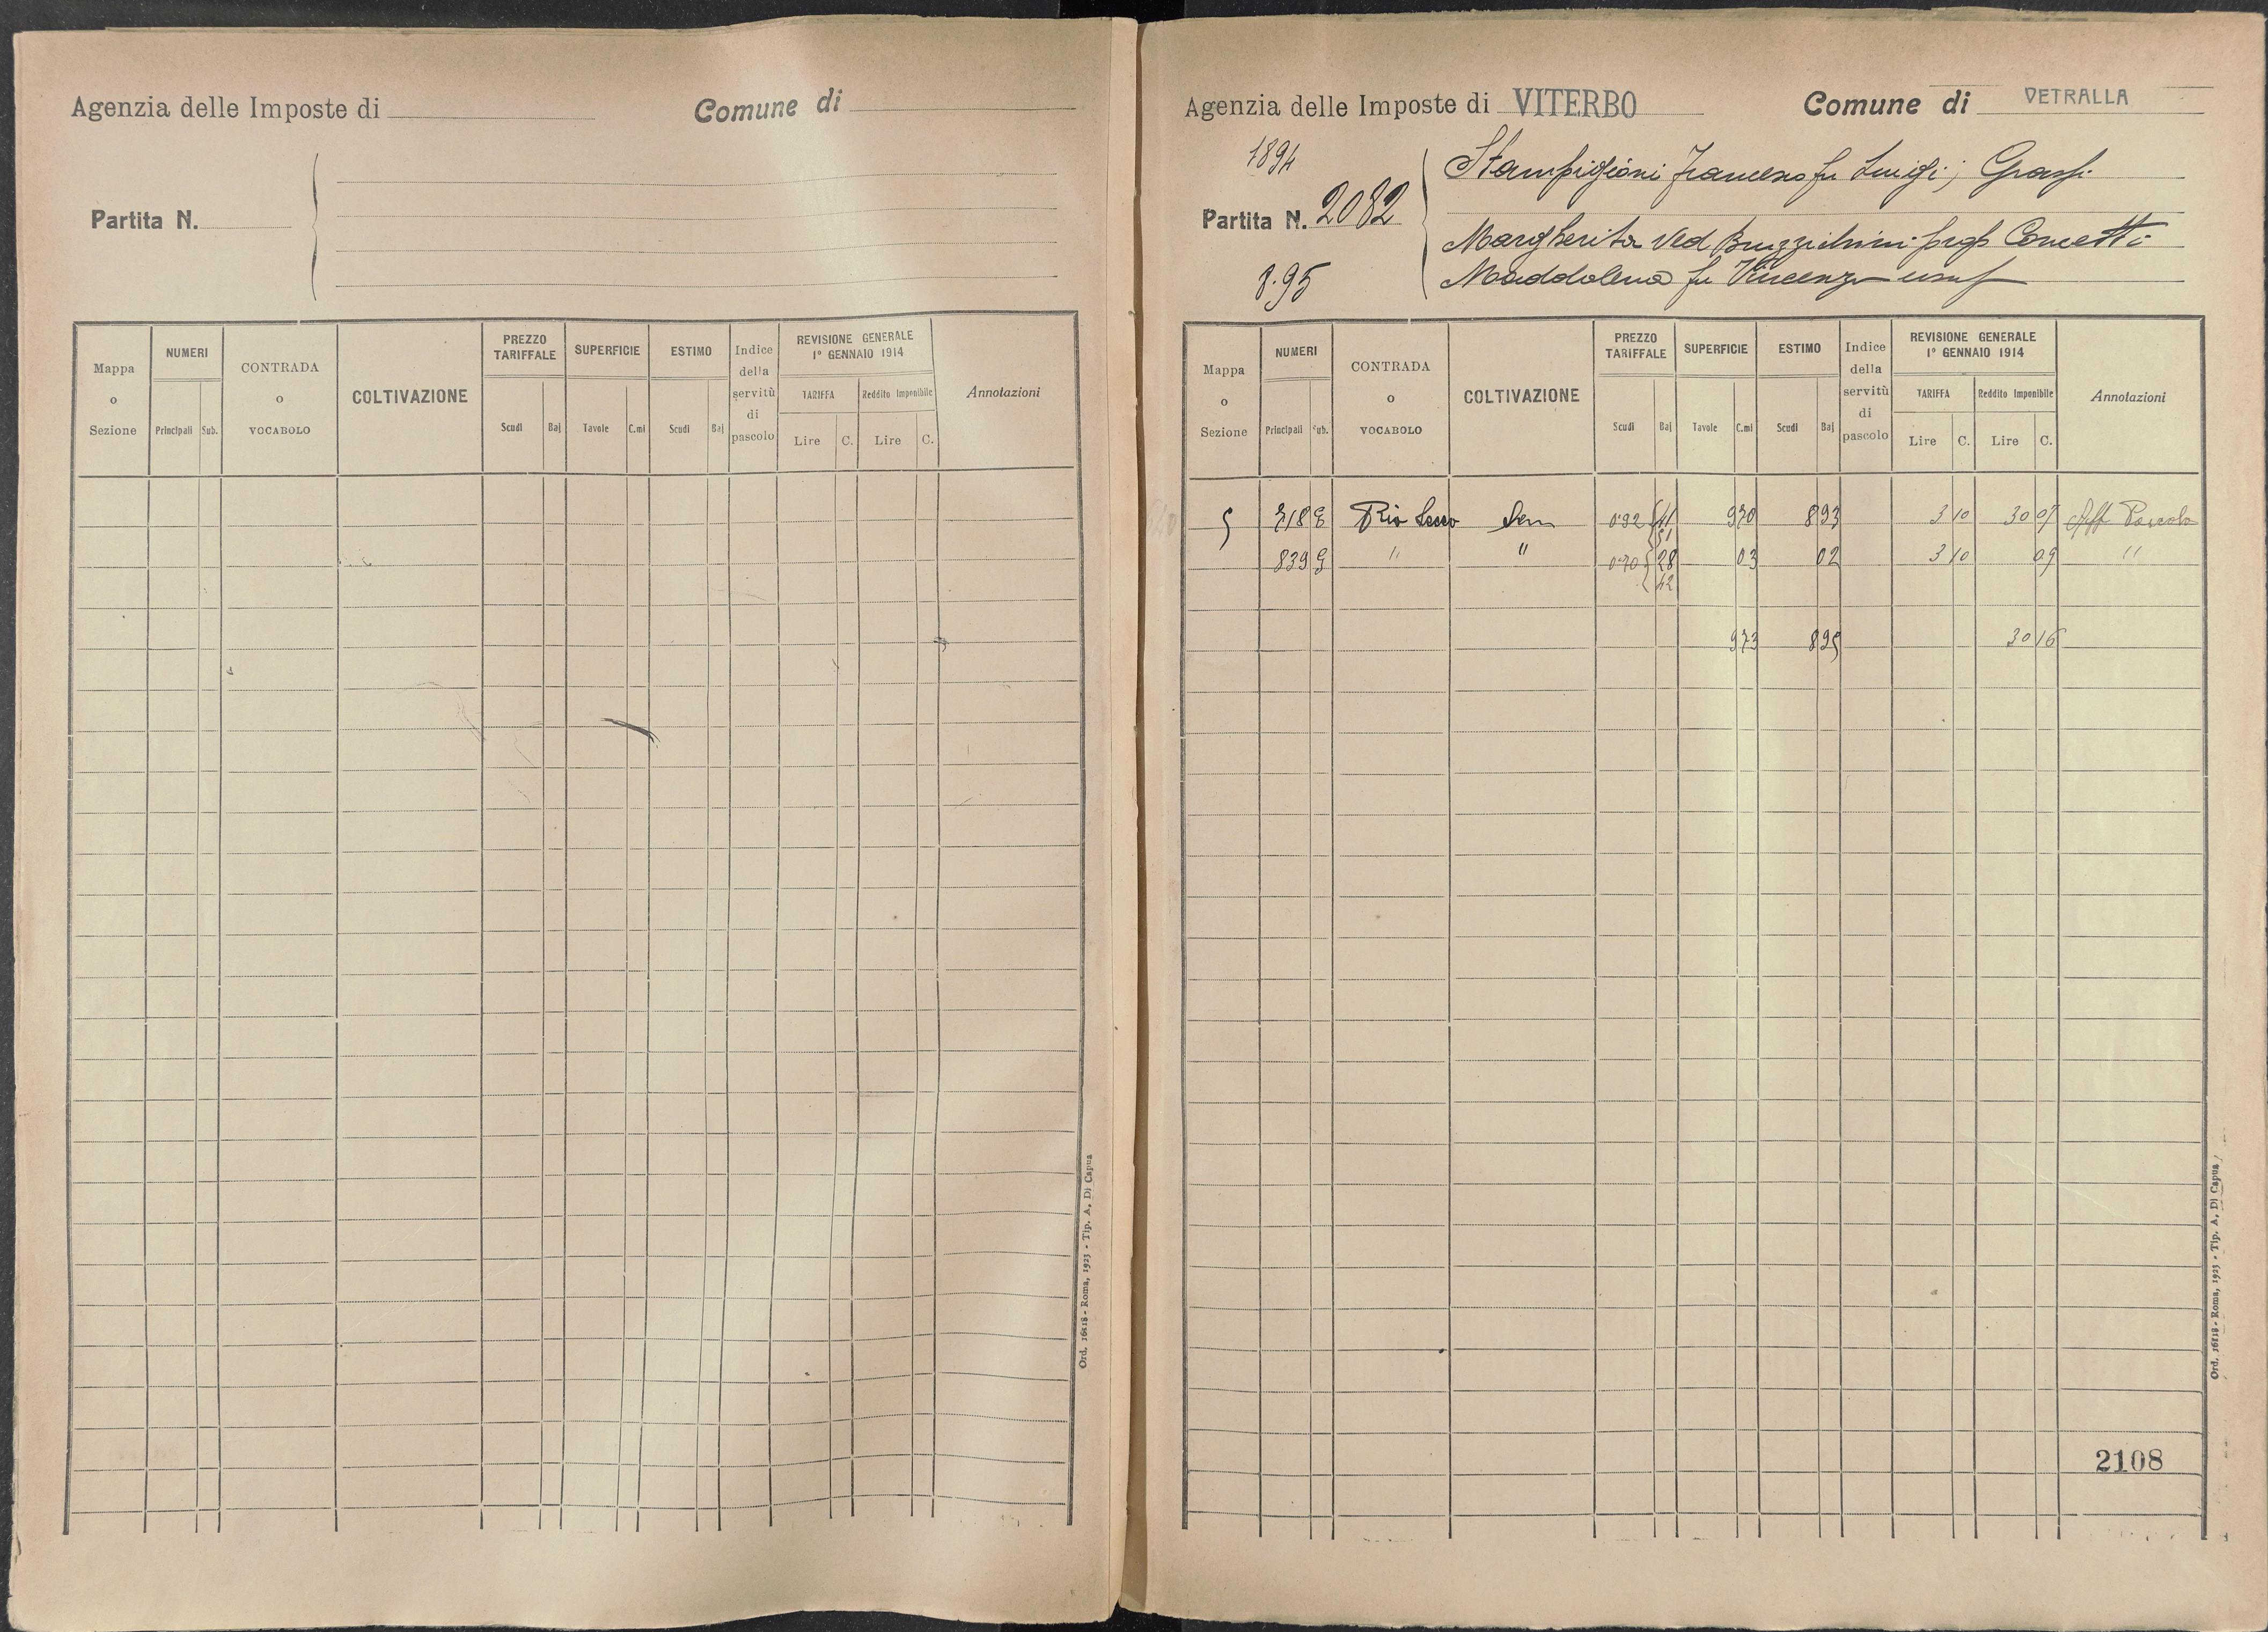 Agenzia delle Imposte di
Comune di
Partita N.
Mappa o Sezione
NUMERI
Principali Sub.
CONTRADA o VOCABOLO
COLTIVAZIONE
PREZZO TARIFFALE
Scudi Baj
SUPERFICIE
Tavole C.mi
ESTIMO
Scudi Baj
Indice della servitù di pascolo
REVISIONE GENERALE
1º GENNAIO 1914
TARIFFA Reddito Imponibile
Lire C. Lire C.
Annotazioni
Ord. 16218 - Roma, 1923 - Tip. A. Di Capua
Agenzia delle Imposte di VITERBO
Comune di VETRALLA
1894
Partita N. 2082
8.95
Stampigioni Francesco fu Luigi; Grassi
Margherita Ved prop Concetti
Maddalena fu Vincenzo usuf
Mappa o Sezione
NUMERI
Principali Sub.
CONTRADA o VOCABOLO
COLTIVAZIONE
PREZZO TARIFFALE
Scudi Baj
SUPERFICIE
Tavole C.mi
ESTIMO
Scudi Baj
Indice della servitù di pascolo
REVISIONE GENERALE
1º GENNAIO 1914
TARIFFA Reddito Imponibile
Lire C. Lire C.
Annotazioni
5 Rio Secco Sem 0.92 970 893 3 10 30 07 Aff Pascolo
839 " " 0.70 28 03 02 3 10 09 "
42
973 895 30 16
2108
Ord. 16218 - Roma, 1923 - Tip. A. Di Capua